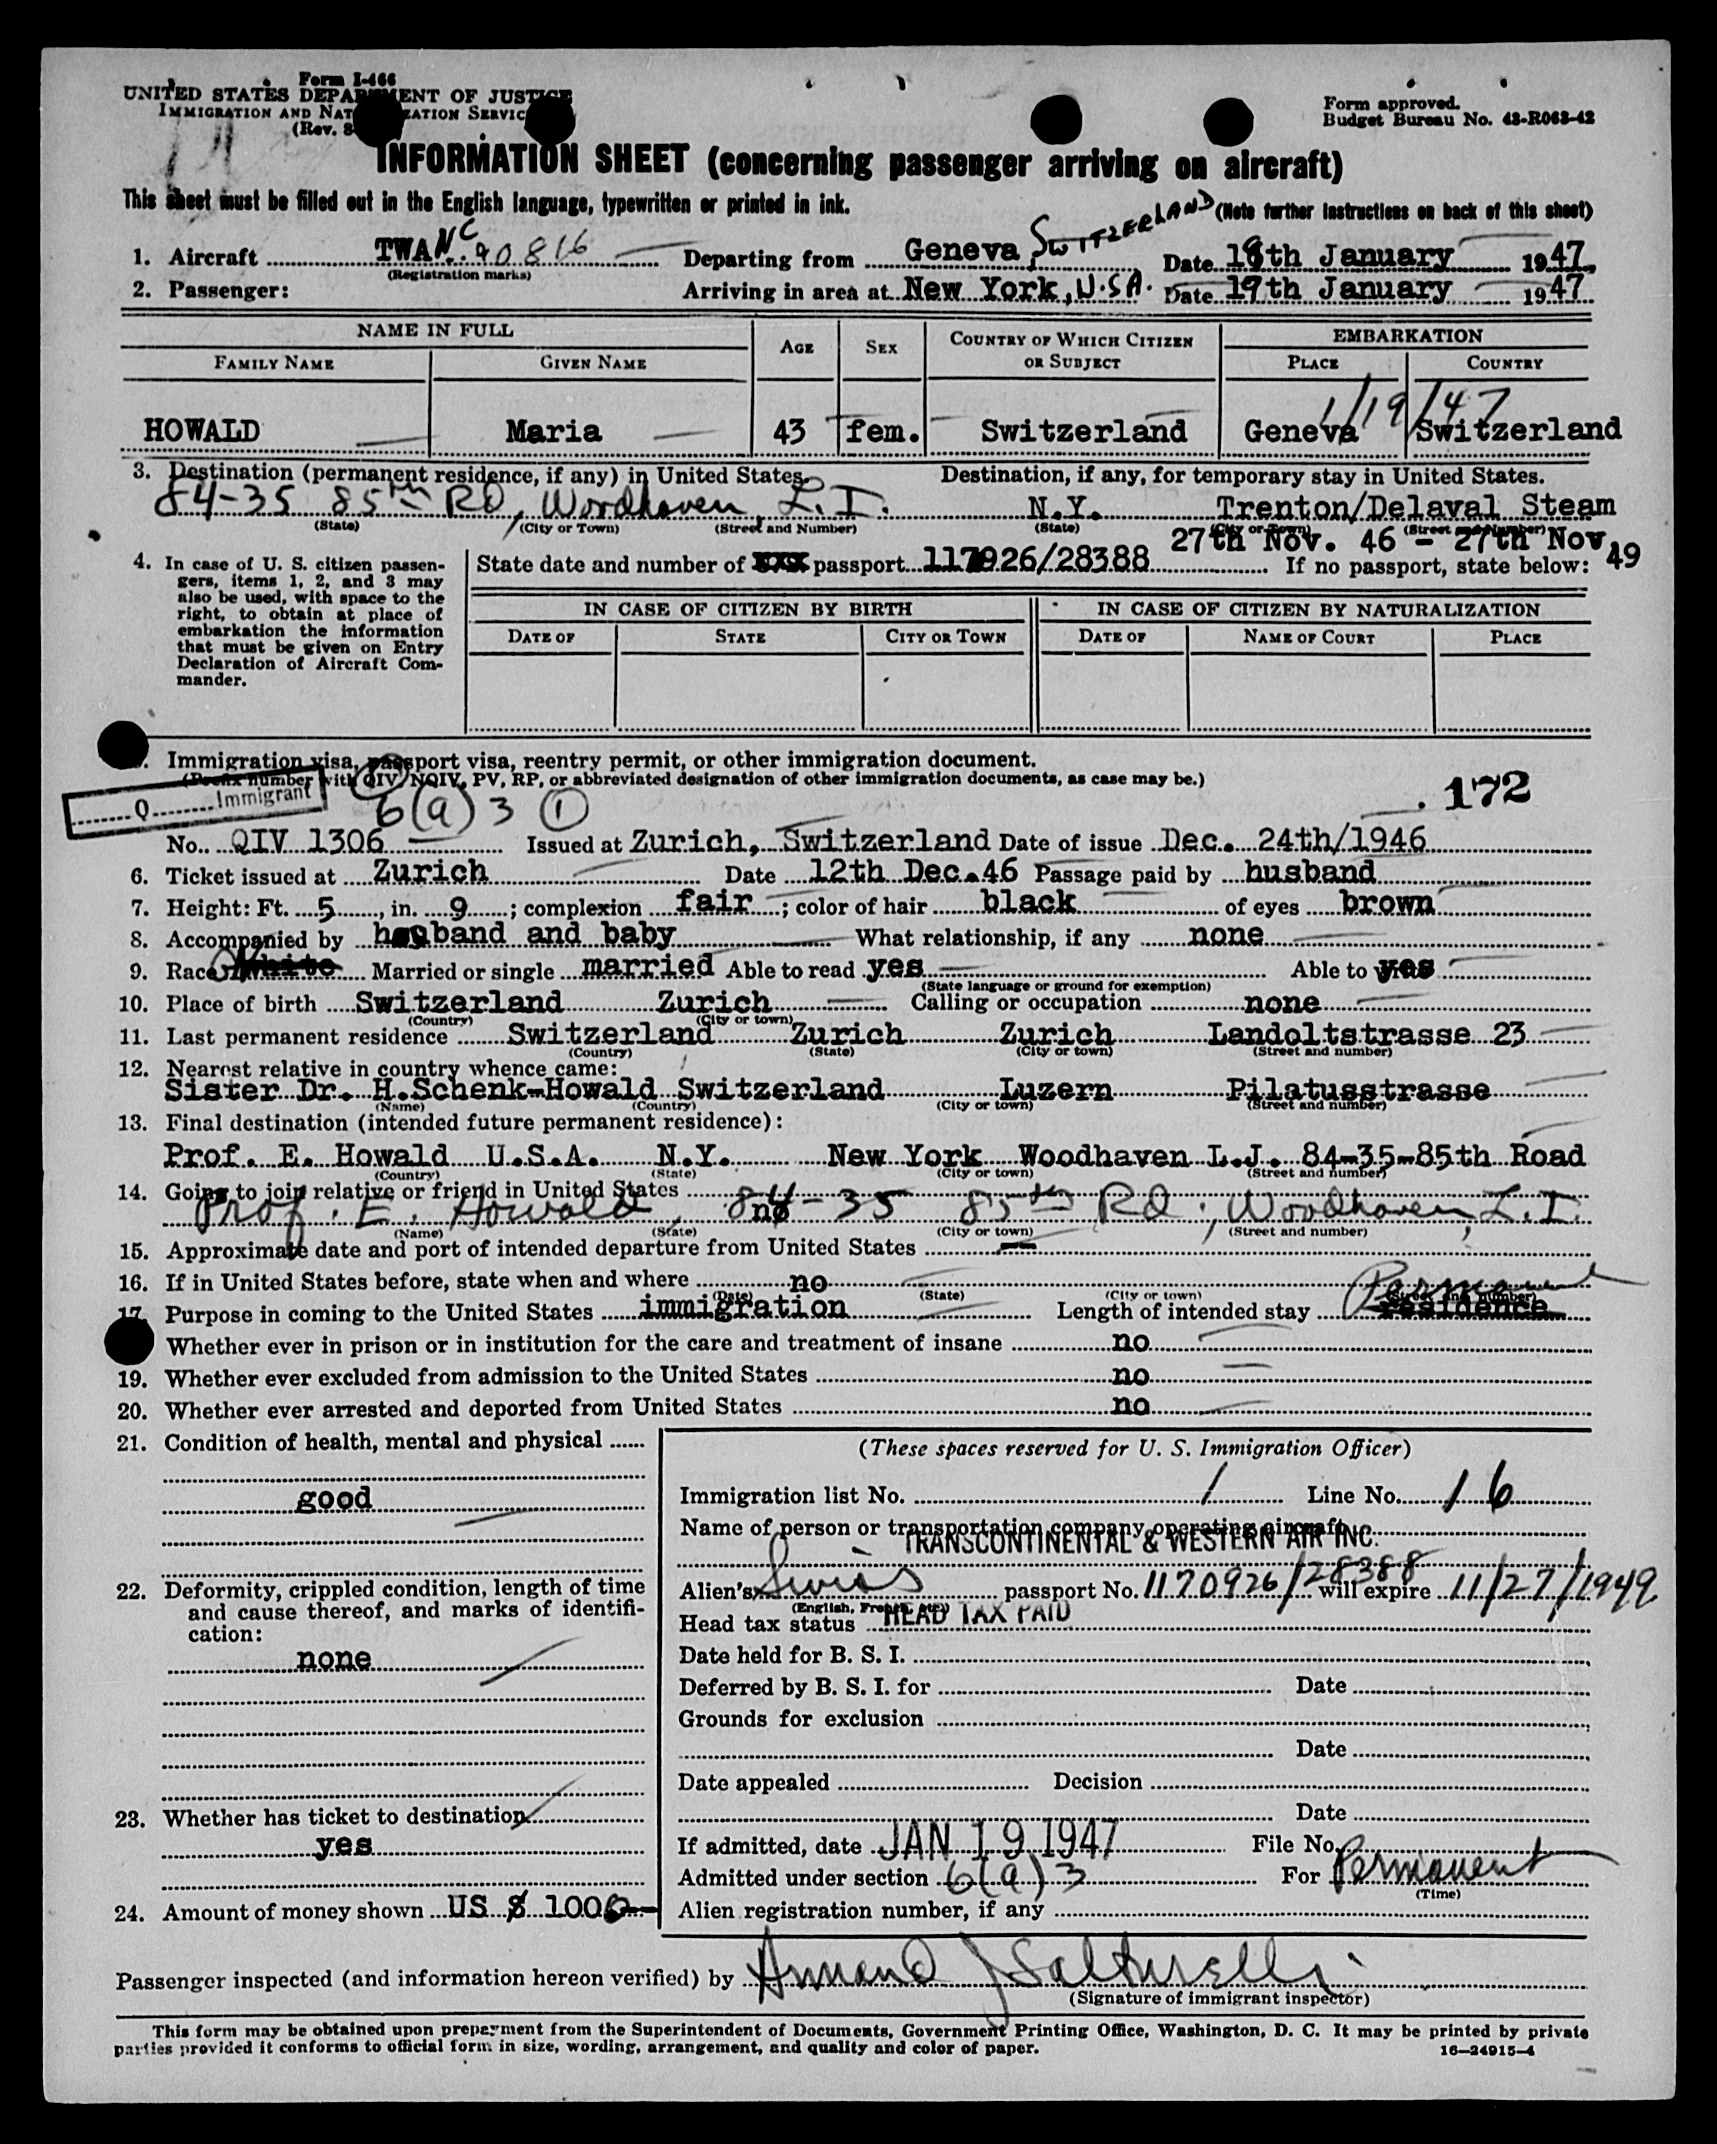 Form I-466
UNITED STATES DEPARTMENT OF JUSTICE
IMMIGRATION AND NATURALIZATION SERVICE
(Rev. 8
Form approved.
Budget Bureau No. 43-R063-42
INFORMATION SHEET (concerning passenger arriving on aircraft)
This sheet must be filled out in the English language, typewritten or printed in ink.
(Note further instructions on back of this sheet)
1. Aircraft TWA NC 90816 Departing from Geneva SWITZERLAND Date 18th January 1947,
(Registration marks)
2. Passenger: Arriving in area at New York, U.S.A. Date 19th January 1947
NAME IN FULL AGE SEX COUNTRY OF WHICH CITIZEN OR SUBJECT EMBARKATION
FAMILY NAME GIVEN NAME PLACE COUNTRY
1/19/47
HOWALD Maria 43 fem. Switzerland Geneva Switzerland
3. Destination (permanent residence, if any) in United States. Destination, if any, for temporary stay in United States.
84-35 85th RD, Woodhaven, L.I. N.Y. Trenton/Delaval Steam
(State) (City or Town) (Street and Number) (State) (City or Town) (Street and Number)
27th Nov. 46 - 27th Nov. 49
4. In case of U. S. citizen passen- State date and number of xxx passport 1170926/28388 If no passport, state below:
gers, items 1, 2, and 3 may
also be used, with space to the
right, to obtain at place of
embarkation the information
that must be given on Entry
Declaration of Aircraft Com-
mander.
IN CASE OF CITIZEN BY BIRTH IN CASE OF CITIZEN BY NATURALIZATION
DATE OF STATE CITY OR TOWN DATE OF NAME OF COURT PLACE
Immigration visa, passport visa, reentry permit, or other immigration document.
(Prefix number with QIV, NQIV, PV, RP, or abbreviated designation of other immigration documents, as case may be.)
Q Immigrant 6(a)3 1 172
No. QIV 1306 Issued at Zurich, Switzerland Date of issue Dec. 24th/1946
6. Ticket issued at Zurich Date 12th Dec.46 Passage paid by husband
7. Height: Ft. 5, in. 9; complexion fair; color of hair black of eyes brown
8. Accompanied by husband and baby What relationship, if any none
9. Race White Married or single married Able to read yes Able to write yes
(State language or ground for exemption)
10. Place of birth Switzerland Zurich Calling or occupation none
(Country) (City or town)
11. Last permanent residence Switzerland Zurich Zurich Landoltstrasse 23
(Country) (State) (City or town) (Street and number)
12. Nearest relative in country whence came:
Sister Dr. H.Schenk-Howald Switzerland Luzern Pilatusstrasse
(Name) (Country) (City or town) (Street and number)
13. Final destination (intended future permanent residence):
Prof. E. Howald U.S.A. N.Y. New York Woodhaven L.J. 84-35-85th Road
(Country) (State) (City or town) (Street and number)
14. Going to join relative or friend in United States
no
Prof. E. Howald, 84-35 85th Rd., Woodhaven, L.I.
(Name) (State) (City or town) (Street and number)
15. Approximate date and port of intended departure from United States —
16. If in United States before, state when and where no
(Date) (State) (City or town) (Street and number)
17. Purpose in coming to the United States immigration Length of intended stay residence Permanent
Whether ever in prison or in institution for the care and treatment of insane no
19. Whether ever excluded from admission to the United States no
20. Whether ever arrested and deported from United States no
21. Condition of health, mental and physical
good
22. Deformity, crippled condition, length of time
and cause thereof, and marks of identifi-
cation:
none
23. Whether has ticket to destination
yes
24. Amount of money shown US $ 1000
(These spaces reserved for U. S. Immigration Officer)
Immigration list No. 1 Line No. 16
Name of person or transportation company operating aircraft
TRANSCONTINENTAL & WESTERN AIR INC.
Alien's Swiss passport No. 1170926/28388 will expire 11/27/1949
(English, French, etc.)
Head tax status HEAD TAX PAID
Date held for B. S. I.
Deferred by B. S. I. for Date
Grounds for exclusion
Date
Date appealed Decision
Date
If admitted, date JAN 19 1947 File No.
Admitted under section 6(a)3 For Permanent
(Time)
Alien registration number, if any
Passenger inspected (and information hereon verified) by Armand J Salturelli
(Signature of immigrant inspector)
This form may be obtained upon prepayment from the Superintendent of Documents, Government Printing Office, Washington, D. C. It may be printed by private
parties provided it conforms to official form in size, wording, arrangement, and quality and color of paper.
16—24915-4